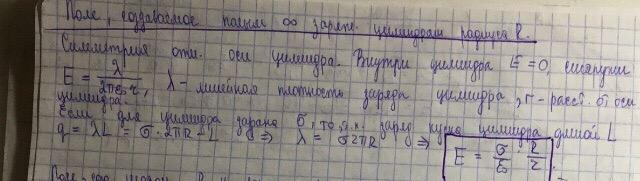 Поле, создаваемое полым ∞ заряж. цилиндром радиуса R.
Симметрия отн. оси цилиндра. Внутри цилиндра E = 0, снаружи
E = λ/2πε₀r, λ - линейная плотность заряда цилиндра, r - расст. от оси
цилиндра.
Если для цилиндра задана σ, то, т.к. заряд куска цилиндра длиной L
q = λL = σ · 2πR · L ⇒ λ = σ2πR ⇒ E = σ/ε₀ · R/r